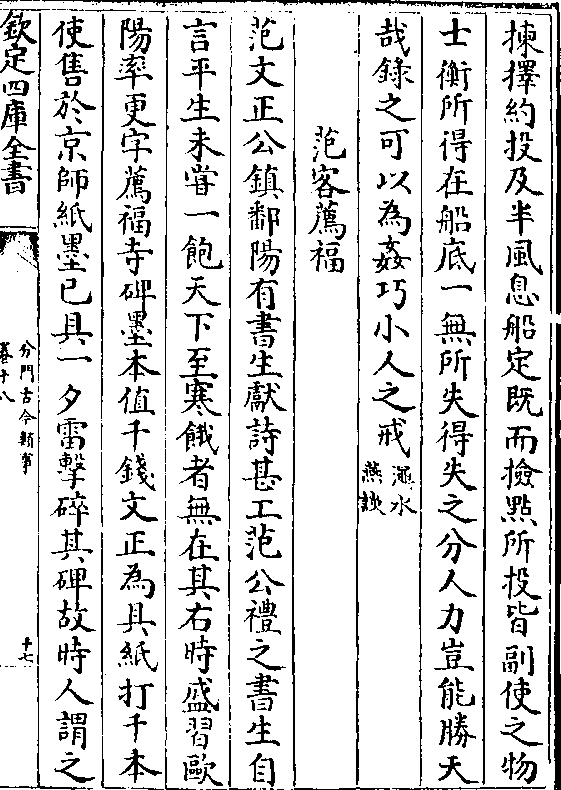 揀擇約投及半風息船定既而撿㸃所投皆副使之物
士衡所得在船底一無所失得失之分人力豈能勝天
哉錄之可以為姦巧小人之戒澠水燕談
范客薦福
范文正公鎮鄱陽有書生獻詩甚工范公禮之書生自
言平生未甞一飽天下至寒餓者無在其右時盛習歐
陽率更字薦福寺碑墨本值千錢文正為具紙打千本
使售於京師紙墨已具一夕雷擊碎其碑故時人謂之
欽定四庫全書
分門古今類事
卷十八
十七